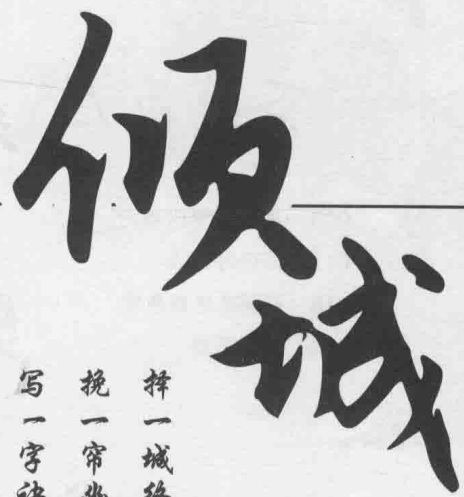 倾城
择一城终
挽一帘幽
写一字诀